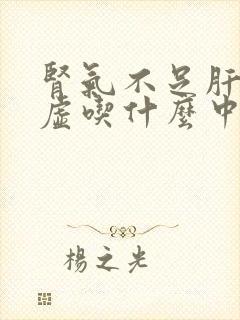 腎氣不足肝
虛喫什麼中
楊之光